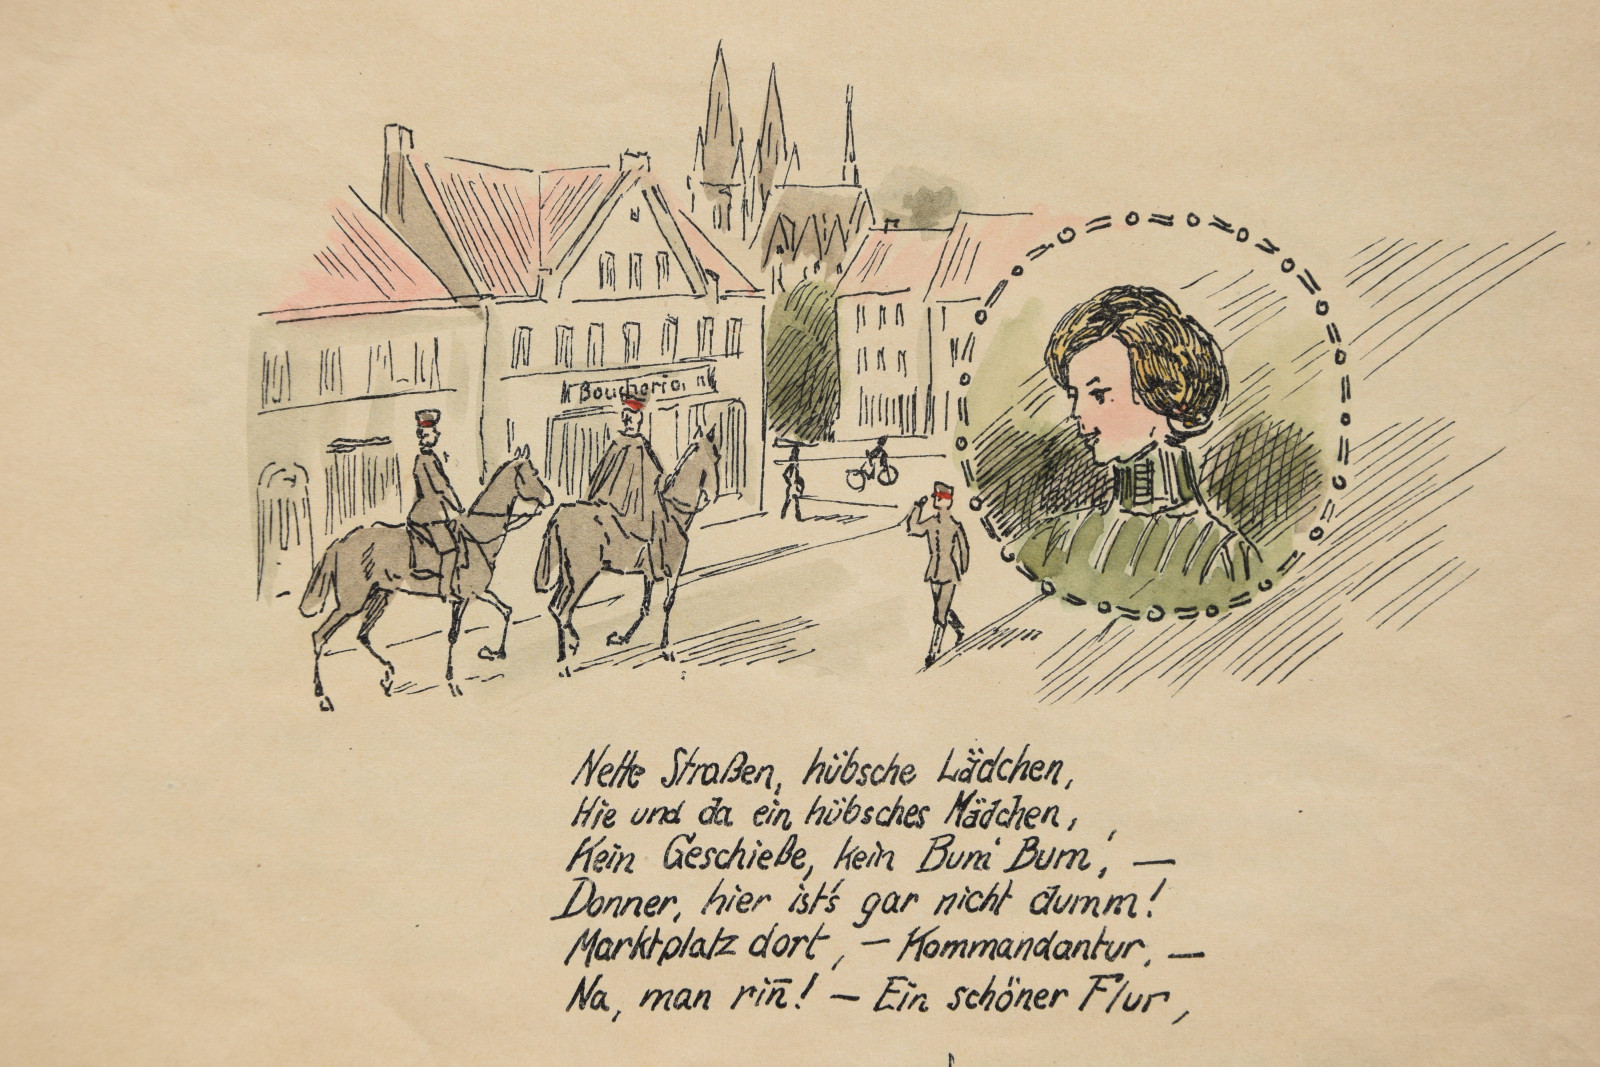 Boucherie
Nette Straßen, hübsche Lädchen,
Hie und da ein hübsches Mädchen,
Kein Geschieße, kein Bum' Bum', —
Donner, hier ist's gar nicht dumm!
Marktplatz dort, — Kommandantur, —
Na, man rin̄! — Ein schöner Flur,